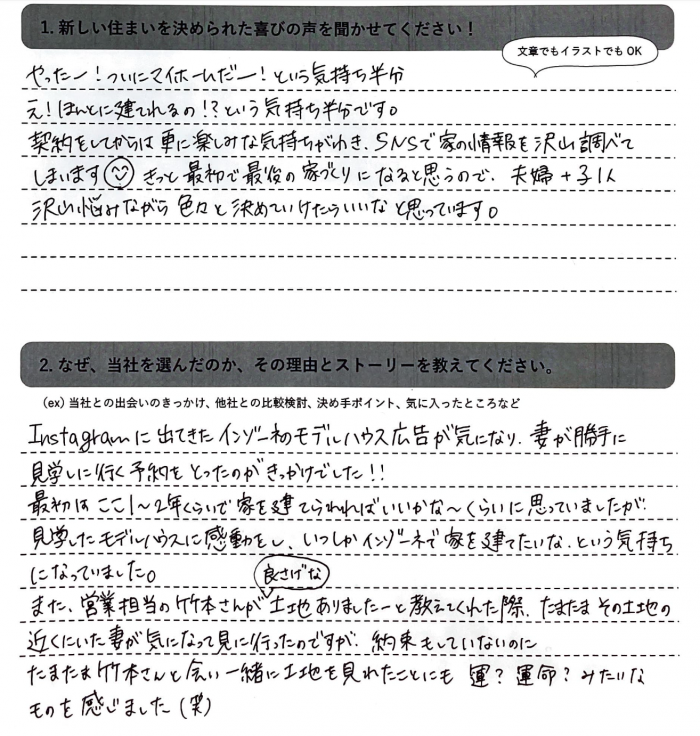 1. 新しい住まいを決められた喜びの声を聞かせてください！
文章でもイラストでも OK
やったー！ついにマイホームだー！という気持ち半分
え！ほんとに建てれるの！？という気持ち半分です。
契約をしてからは更に楽しみな気持ちがわき、SNSで家の情報を沢山調べて
しまいます きっと最初で最後の家づくりになると思うので、夫婦+子1人
沢山悩みながら色々と決めていけたらいいなと思っています。
2. なぜ、当社を選んだのか、その理由とストーリーを教えてください。
（ex）当社との出会いのきっかけ、他社との比較検討、決め手ポイント、気に入ったところなど
Instagramに出てきたインゾーネのモデルハウス広告が気になり、妻が勝手に
見学しに行く予約をとったのがきっかけでした！！
最初はここ1〜2年くらいで家を建てられればいいかな〜くらいに思っていましたが、
見学したモデルハウスに感動をし、いつしかインゾーネで家を建てたいな、という気持ち
になっていました。
良さげな
また、営業担当の竹本さんが土地ありましたーと教えてくれた際、たまたまその土地の
近くにいた妻が気になって見に行ったのですが、約束もしていないのに
たまたま竹本さんと会い一緒に土地を見れたことにも 運？運命？みたいな
ものを感じました（笑）